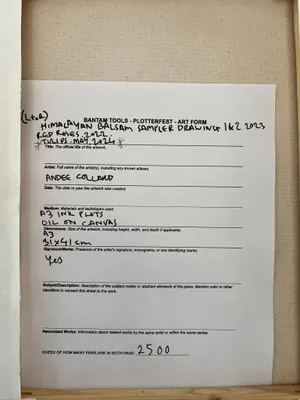 (L to R)
BANTAM TOOLS - PLOTTERFEST - ART FORM
HIMALAYAN BALSAM SAMPLER DRAWING 1&2 2023
RED ROSES. 2022.
*TULIPS. MAY. 2024*
Title: The official title of the artwork.
Artist: Full name of the artist(s), including any known aliases.
ANDEE COLLARD
Date: The date or year the artwork was created.
Medium: Materials and techniques used.
A3 INK PLOTS
OIL ON CANVAS
Dimensions: Size of the artwork, including height, width, and depth if applicable.
A3
31x41cm
Signature/Marks: Presence of the artist's signature, monograms, or any identifying marks.
Yes
Subject/Description: description of the subject matter or abstract elements of the piece. Mention color or other
identifiers to connect this sheet to the work.
Associated Works: Information about related works by the same artist or within the same series.
GUESS OF HOW MANY PENS ARE IN BOTH PANS: 2500